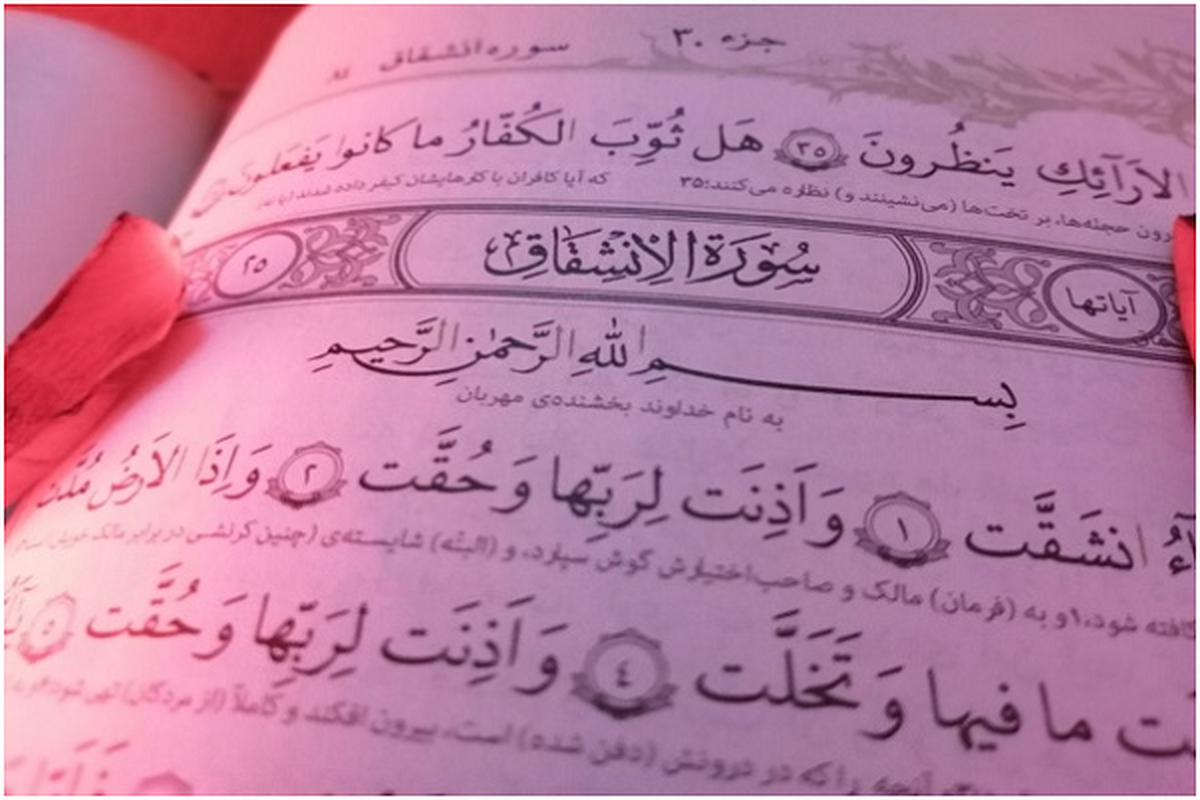 جزء ۳۰ سوره انشقاق ۸٤
الاَرَآئِكِ يَنظُرونَ ۳۵ هَل ثُوِّبَ الكُفّارُ ما كانوا يَفعَلونَ
حجله‌ها، بر تخت‌ها (می‌نشینند و) نظاره می‌کنند؛۳۵ که آیا کافران با کارهایشان کیفر داده شدند
آیاتها سُورَةُ الاِنشِقاقِ ۲۵
بِسمِ اللهِ الرَّحمٰنِ الرَّحيمِ
به نام خداوند بخشنده‌ی مهربان
انشَقَّت ۱ وَ اَذِنَت لِرَبِّها وَ حُقَّت ۲ وَ اِذَا الاَرضُ مُدَّت
شود،۱و به (فرمان) مالک و صاحب‌اختیارش گوش سپارد، و (البتّه) شایسته‌ی (چنین کرنشی در برابر مالک خویش
ما فيها وَ تَخَلَّت ٤ وَ اَذِنَت لِرَبِّها وَ حُقَّت ۵
آنچه را که در درونش (دفن شده) است، بیرون افکند و کاملاً (از مردگان) تهی شود؛